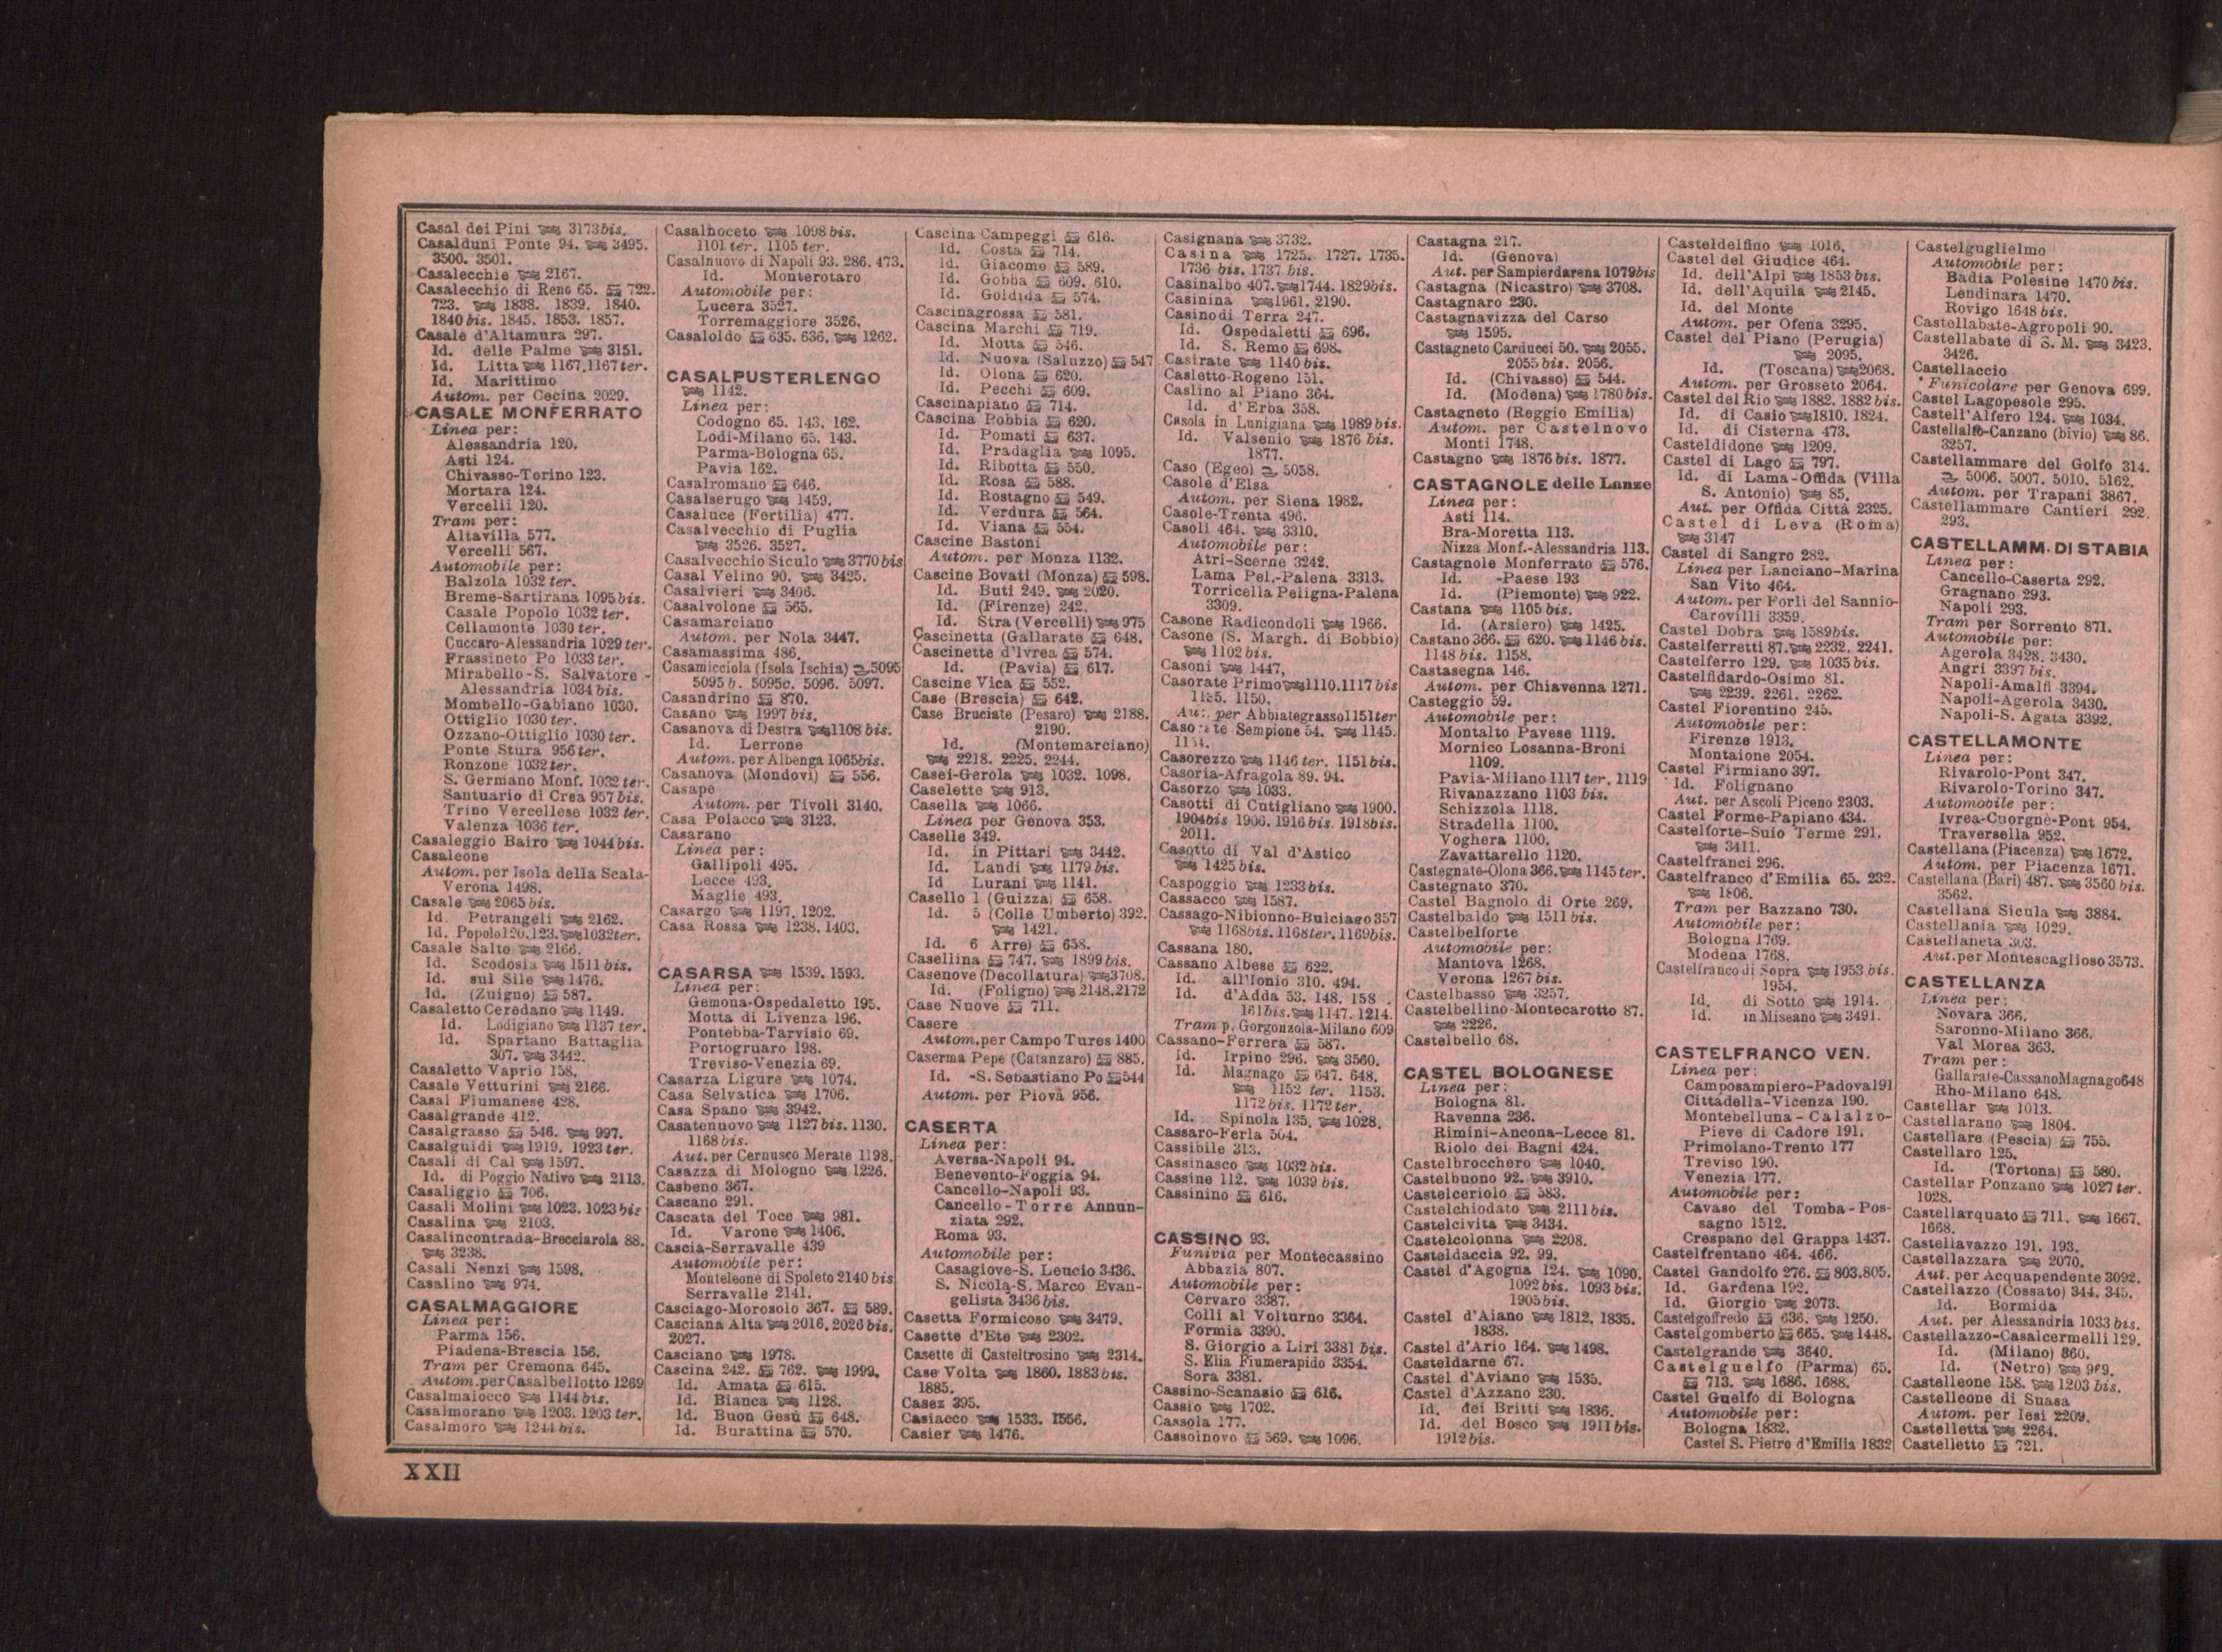 Casal dei Pini 3173bis.
Casalduni Ponte 94. 3495.
3500. 3501.
Casalecchie 2167.
Casalecchio di Reno 65. 722.
723. 1838. 1839. 1840.
1840bis. 1845. 1853. 1857.
Casale d'Altamura 297.
Id. delle Palme 3151.
Id. Litta 1167.1167ter.
Id. Marittimo
Autom. per Cecina 2029.
CASALE MONFERRATO
Linea per:
Alessandria 120.
Asti 124.
Chivasso-Torino 123.
Mortara 124.
Vercelii 120.
Tram per:
Altavilla 577.
Vercelli 567.
Automobile per:
Balzola 1032ter.
Breme-Sartirana 1095bis.
Casale Popolo 1032ter.
Cellamonte 1030ter.
Cuccaro-Alessandria 1029ter.
Frassineto Po 1033ter.
Mirabello-S. Salvatore -
Alessandria 1034bis.
Mombello-Gabiano 1030.
Ottiglio 1030ter.
Ozzano-Ottiglio 1030ter.
Ponte Stura 956ter.
Ronzone 1032ter.
S. Germano Monf. 1032ter.
Santuario di Crea 957bis.
Trino Vercellese 1032ter.
Valenza 1036ter.
Casaleggio Bairo 1044bis.
Casaleone
Autom. per Isola della Scala-
Verona 1498.
Casale 2065bis.
Id. Petrangeli 2162.
Id. Popolo120.123.1032ter.
Casale Salto 2166.
Id. Scodosia 1511bis.
Id. sul Sile 1476.
Id. (Zuigno) 587.
Casaletto Ceredano 1149.
Id. Lodigiano 1137ter.
Id. Spartano Battaglia
307. 3442.
Casaletto Vaprio 158.
Casale Vetturini 2166.
Casal Fiumanese 428.
Casalgrande 412.
Casalgrasso 546. 997.
Casalguidi 1919. 1923ter.
Casali di Cal 1597.
Id. di Poggio Nativo 2113.
Casaliggio 706.
Casali Molini 1023. 1023bis
Casalina 2103.
Casalincontrada-Brecciarola 88.
3238.
Casali Nenzi 1598.
Casalino 974.
CASALMAGGIORE
Linea per:
Parma 156.
Piadena-Brescia 156.
Tram per Cremona 645.
Autom.perCasalbellotto 1269
Casalmaiocco 1144bis.
Casalmorano 1203. 1203ter.
Casalmoro 1244bis.
Casalnoceto 1098bis.
1101ter. 1105ter.
Casalnuovo di Napoli 93. 286. 473.
Id. Monterotaro
Automobile per:
Lucera 3527.
Torremaggiore 3526.
Casaloldo 635. 636. 1262.
CASALPUSTERLENGO
1142.
Linea per:
Codogno 65. 143. 162.
Lodi-Milano 65. 143.
Parma-Bologna 65.
Pavia 162.
Casalromano 646.
Casalserugo 1459.
Casaluce (Fertilia) 477.
Casalvecchio di Puglia
3526. 3527.
Casalvecchio Siculo 3770bis
Casal Velino 90. 3425.
Casalvieri 3406.
Casalvolone 565.
Casamarciano
Autom. per Nola 3447.
Casamassima 486.
Casamicciola (Isola Ischia) 5095
5095b. 5095c. 5096. 5097.
Casandrino 870.
Casano 1997bis.
Casanova di Destra 1108bis.
Id. Lerrone
Autom. per Albenga 1065bis.
Casanova (Mondovì) 556.
Casape
Autom. per Tivoli 3140.
Casa Polacco 3123.
Casarano
Linea per:
Gallipoli 495.
Lecce 493.
Maglie 493.
Casargo 1197. 1202.
Casa Rossa 1238. 1403.
CASARSA 1539. 1593.
Linea per:
Gemona-Ospedaletto 195.
Motta di Livenza 196.
Pontebba-Tarvisio 69.
Portogruaro 198.
Treviso-Venezia 69.
Casarza Ligure 1074.
Casa Selvatica 1706.
Casa Spano 3942.
Casatenuovo 1127bis. 1130.
1168bis.
Aut. per Cernusco Merate 1198.
Casazza di Mologno 1226.
Casbeno 367.
Cascano 291.
Cascata del Toce 981.
Id. Varone 1406.
Cascia-Serravalle 439
Automobile per:
Monteleone di Spoleto 2140bis
Serravalle 2141.
Casciago-Morosolo 367. 589.
Casciana Alta 2016. 2026bis.
2027.
Casciano 1978.
Cascina 242. 762. 1999.
Id. Amata 615.
Id. Bianca 1128.
Id. Buon Gesù 648.
Id. Burattina 570.
Cascina Campeggi 616.
Id. Costa 714.
Id. Giacomo 589.
Id. Gobba 609. 610.
Id. Goldida 574.
Cascinagrossa 581.
Cascina Marchi 719.
Id. Motta 546.
Id. Nuova (Saluzzo) 547
Id. Olona 620.
Id. Pecchi 609.
Cascinapiano 714.
Cascina Pobbia 620.
Id. Pomati 637.
Id. Pradaglia 1095.
Id. Ribotta 550.
Id. Rosa 588.
Id. Rostagno 549.
Id. Verdura 564.
Id. Viana 554.
Cascine Bastoni
Autom. per Monza 1132.
Cascine Bovati (Monza) 598.
Id. Buti 249. 2020.
Id. (Firenze) 242.
Id. Stra (Vercelli) 975
Cascinetta (Gallarate 648.
Cascinette d'Ivrea 574.
Id. (Pavia) 617.
Cascine Vica 552.
Case (Brescia) 642.
Case Bruciate (Pesaro) 2188.
2190.
Id. (Montemarciano)
2218. 2225. 2244.
Casei-Gerola 1032. 1098.
Caselette 913.
Casella 1066.
Linea per Genova 353.
Caselle 349.
Id. in Pittari 3442.
Id. Landi 1179bis.
Id Lurani 1141.
Casello 1 (Guizza) 658.
Id. 5 (Colle Umberto) 392.
1421.
Id. 6 Arre) 658.
Casellina 747. 1899bis.
Casenove (Decollatura) 3708.
Id. (Foligno) 2148.2172
Case Nuove 711.
Casere
Autom.per Campo Tures 1400
Caserma Pepe (Catanzaro) 885.
Id. -S. Sebastiano Po 544
Autom. per Piovà 956.
CASERTA
Linea per:
Aversa-Napoli 94.
Benevento-Foggia 94.
Cancello-Napoli 93.
Cancello-Torre Annun-
ziata 292.
Roma 93.
Automobile per:
Casagiove-S. Leucio 3436.
S. Nicola-S. Marco Evan-
gelista 3436bis.
Casetta Formicoso 3479.
Casette d'Ete 2302.
Casette di Casteltrosino 2314.
Case Volta 1860. 1883bis.
1885.
Casez 395.
Casiacco 1533. 1556.
Casier 1476.
Casignana 3732.
Casina 1725. 1727. 1735.
1736 bis. 1737 bis.
Casinalbo 407. 1744. 1829bis.
Casinina 1961. 2190.
Casino di Terra 247.
Id. Ospedaletti 696.
Id. S. Remo 698.
Casirate 1140bis.
Casletto-Rogeno 151.
Caslino al Piano 364.
Id. d'Erba 358.
Casola in Lunigiana 1989bis.
Id. Valsenio 1876 bis.
1877.
Caso (Egeo) 5058.
Casole d'Elsa
Autom. per Siena 1982.
Casole-Trenta 496.
Casoli 464. 3310.
Automobile per:
Atri-Scerne 3242.
Lama Pel.-Palena 3313.
Torricella Peligna-Palena
3309.
Casone Radicondoli 1966.
Casone (S. Margh. di Bobbio)
1102bis.
Casoni 1447.
Casorate Primo 1110.1117bis
1135. 1150.
Aut. per Abbiategrasso1151ter
Casorate Sempione 54. 1145.
1154.
Casorezzo 1146ter. 1151bis.
Casoria-Afragola 89. 94.
Casorzo 1033.
Casotti di Cutigliano 1900.
1904bis 1906. 1916bis. 1918bis.
2011.
Casotto di Val d'Astico
1425bis.
Caspoggio 1233bis.
Cassacco 1587.
Cassago-Nibionno-Bulciago357
1168bis. 1168ter. 1169bis.
Cassana 180.
Cassano Albese 622.
Id. all'Ionio 310. 494.
Id. d'Adda 53. 148. 158.
161bis. 1147. 1214.
Tram p. Gorgonzola-Milano 609
Cassano-Ferrera 587.
Id. Irpino 296. 3560.
Id. Magnago 647. 648.
1152 ter. 1153.
1172bis. 1172ter.
Id. Spinola 135. 1028.
Cassaro-Ferla 504.
Cassibile 313.
Cassinasco 1032bis.
Cassine 112. 1039bis.
Cassinino 616.
CASSINO 93.
Funivia per Montecassino
Abbazia 807.
Automobile per:
Cervaro 3387.
Colli al Volturno 3364.
Formia 3390.
S. Giorgio a Liri 3381bis.
S. Elia Fiumerapido 3354.
Sora 3381.
Cassino-Scanasio 616.
Cassio 1702.
Cassola 177.
Cassolnovo 569. 1096.
Castagna 217.
Id. (Genova)
Aut. per Sampierdarena 1079bis
Castagna (Nicastro) 3708.
Castagnaro 230.
Castagnavizza del Carso
1595.
Castagneto Carducci 50. 2055.
2055bis. 2056.
Id. (Chivasso) 544.
Id. (Modena) 1780bis.
Castagneto (Reggio Emilia)
Autom. per Castelnovo
Monti 1748.
Castagno 1876bis. 1877.
CASTAGNOLE delle Lanze
Linea per:
Asti 114.
Bra-Moretta 113.
Nizza Monf.-Alessandria 113.
Castagnole Monferrato 576.
Id. -Paese 193
Id. (Piemonte) 922.
Castana 1105bis.
Id. (Arsiero) 1425.
Castano 366. 620. 1146bis.
1148bis. 1158.
Castasegna 146.
Autom. per Chiavenna 1271.
Casteggio 59.
Automobile per:
Montalto Pavese 1119.
Mornico Losanna-Broni
1109.
Pavia-Milano 1117ter. 1119
Rivanazzano 1103 bis.
Schizzola 1118.
Stradella 1100.
Voghera 1100.
Zavattarello 1120.
Castegnate-Olona 366. 1145ter.
Castegnato 370.
Castel Bagnolo di Orte 269.
Castelbaldo 1511bis.
Castelbelforte
Automobile per:
Mantova 1268.
Verona 1267bis.
Castelbasso 3257.
Castelbellino-Montecarotto 87.
2226.
Castelbello 68.
CASTEL BOLOGNESE
Linea per:
Bologna 81.
Ravenna 236.
Rimini-Ancona-Lecce 81.
Riolo dei Bagni 424.
Castelbrocchero 1040.
Castelbuono 92. 3910.
Castelceriolo 583.
Castelchiodato 2111bis.
Castelcivita 3434.
Castelcolonna 2208.
Casteldaccia 92. 99.
Castel d'Agogna 124. 1090.
1092bis. 1093bis.
1905bis.
Castel d'Aiano 1812. 1835.
1838.
Castel d'Ario 164. 1498.
Casteldarne 67.
Castel d'Aviano 1535.
Castel d'Azzano 230.
Id. dei Britti 1836.
Id. del Bosco 1911bis.
1912bis.
Casteldelfino 1016.
Castel del Giudice 464.
Id. dell'Alpi 1853bis.
Id. dell'Aquila 2145.
Id. del Monte
Autom. per Ofena 3295.
Castel del Piano (Perugia)
2095.
Id. (Toscana) 2068.
Autom. per Grosseto 2064.
Castel del Rio 1882. 1882bis.
Id. di Casio 1810. 1824.
Id. di Cisterna 473.
Casteldidone 1209.
Castel di Lago 797.
Id. di Lama-Offida (Villa
S. Antonio) 85.
Aut. per Offida Città 2325.
Castel di Leva (Roma)
3147
Castel di Sangro 282.
Linea per Lanciano-Marina
San Vito 464.
Autom. per Forlì del Sannio-
Carovilli 3359.
Castel Dobra 1589bis.
Castelferretti 87. 2232. 2241.
Castelferro 129. 1035bis.
Castelfidardo-Osimo 81.
2239. 2261. 2262.
Castel Fiorentino 245.
Automobile per:
Firenze 1913.
Montaione 2054.
Castel Firmiano 397.
Id. Folignano
Aut. per Ascoli Piceno 2303.
Castel Forme-Papiano 434.
Castelforte-Suio Terme 291.
3411.
Castelfranci 296.
Castelfranco d'Emilia 65. 232.
1806.
Tram per Bazzano 730.
Automobile per:
Bologna 1769.
Modena 1768.
Castelfranco di Sopra 1953bis.
1954.
Id. di Sotto 1914.
Id. in Miseano 3491.
CASTELFRANCO VEN.
Linea per:
Camposampiero-Padova191
Cittadella-Vicenza 190.
Montebelluna-Calalzo-
Pieve di Cadore 191.
Primolano-Trento 177
Treviso 190.
Venezia 177.
Automobile per:
Cavaso del Tomba-Pos-
sagno 1512.
Crespano del Grappa 1437.
Castelfrentano 464. 466.
Castel Gandolfo 276. 803.805.
Id. Gardena 192.
Id. Giorgio 2073.
Castelgoffredo 636. 1250.
Castelgomberto 665. 1448.
Castelgrande 3640.
Castelguelfo (Parma) 65.
713. 1686. 1688.
Castel Guelfo di Bologna
Automobile per:
Bologna 1832.
Castel S. Pietro d'Emilia 1832
Castelguglielmo
Automobile per:
Badia Polesine 1470bis.
Lendinara 1470.
Rovigo 1648bis.
Castellabate-Agropoli 90.
Castellabate di S. M. 3423.
3426.
Castellaccio
* Funicolare per Genova 699.
Castel Lagopesole 295.
Castell'Alfero 124. 1034.
Castellalto-Canzano (bivio) 86.
3257.
Castellammare del Golfo 314.
5006. 5007. 5010. 5162.
Autom. per Trapani 3867.
Castellammare Cantieri 292.
293.
CASTELLAMM. DI STABIA
Linea per:
Cancello-Caserta 292.
Gragnano 293.
Napoli 293.
Tram per Sorrento 871.
Automobile per:
Agerola 3428. 3430.
Angri 3397bis.
Napoli-Amalfi 3394.
Napoli-Agerola 3430.
Napoli-S. Agata 3392.
CASTELLAMONTE
Linea per:
Rivarolo-Pont 347.
Rivarolo-Torino 347.
Automobile per:
Ivrea-Cuorgnè-Pont 954.
Traversella 952.
Castellana (Piacenza) 1672.
Autom. per Piacenza 1671.
Castellana (Bari) 487. 3560bis.
3562.
Castellana Sicula 3884.
Castellania 1029.
Castellaneta 303.
Aut.per Montescaglioso 3573.
CASTELLANZA
Linea per:
Novara 366.
Saronno-Milano 366.
Val Morea 363.
Tram per:
Gallarate-CassanoMagnago648
Rho-Milano 648.
Castellar 1013.
Castellarano 1804.
Castellare (Pescia) 755.
Castellaro 125.
Id. (Tortona) 580.
Castellar Ponzano 1027ter.
1028.
Castellarquato 711. 1667.
1668.
Castellavazzo 191. 193.
Castellazzara 2070.
Aut. per Acquapendente 3092.
Castellazzo (Cossato) 344. 345.
Id. Bormida
Aut. per Alessandria 1033bis.
Castellazzo-Casalcermelli 129.
Id. (Milano) 360.
Id. (Netro) 969.
Castelleone 158. 1203bis.
Castelleone di Suasa
Autom. per Iesi 2209.
Castelletta 2264.
Castelletto 721.
XXII